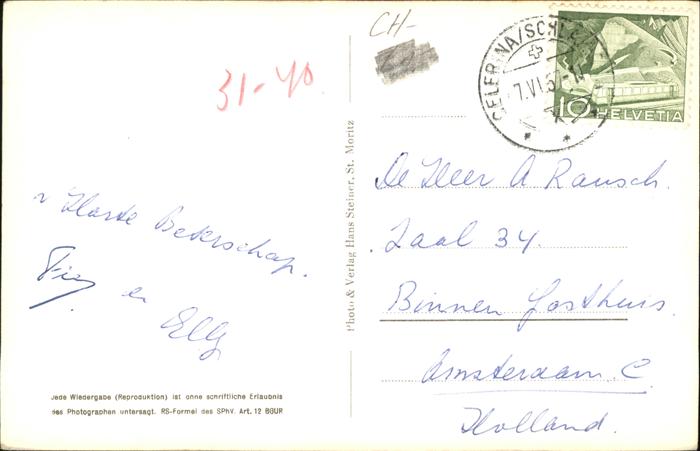 CH-
31-40
CELERINA/SCHLA
7.VI.5
10
HELVETIA
Photo & Verlag Hans Steiner, St. Moritz
De Heer A Rausch.
Zaal 34.
Binnen Gasthuis.
Amsterdam. C.
Holland.
Harte Beterschap.
en
Elly
Jede Wiedergabe (Reproduktion) ist ohne schriftliche Erlaubnis
des Photographen untersagt. RS-Formel des SPhV. Art. 12 BGUR